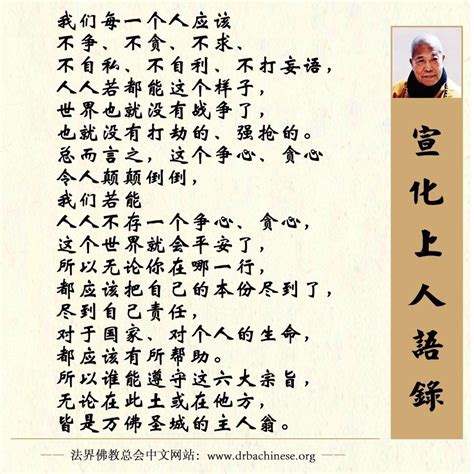 我们每一个人应该
不争、不贪、不求、
不自私、不自利、不打妄语，
人人若都能这个样子，
世界也就没有战争了，
也就没有打劫的、强抢的。
总而言之，这个争心、贪心
令人颠颠倒倒，
我们若能
人人不存一个争心、贪心，
这个世界就会平安了，
所以无论你在哪一行，
都应该把自己的本份尽到了，
尽到自己责任，
对于国家、对个人的生命，
都应该有所帮助。
所以谁能遵守这六大宗旨，
无论在此土或在他方，
皆是万佛圣城的主人翁。
宣化上人語錄
—— 法界佛教总会中文网站：www.drbachinese.org ——